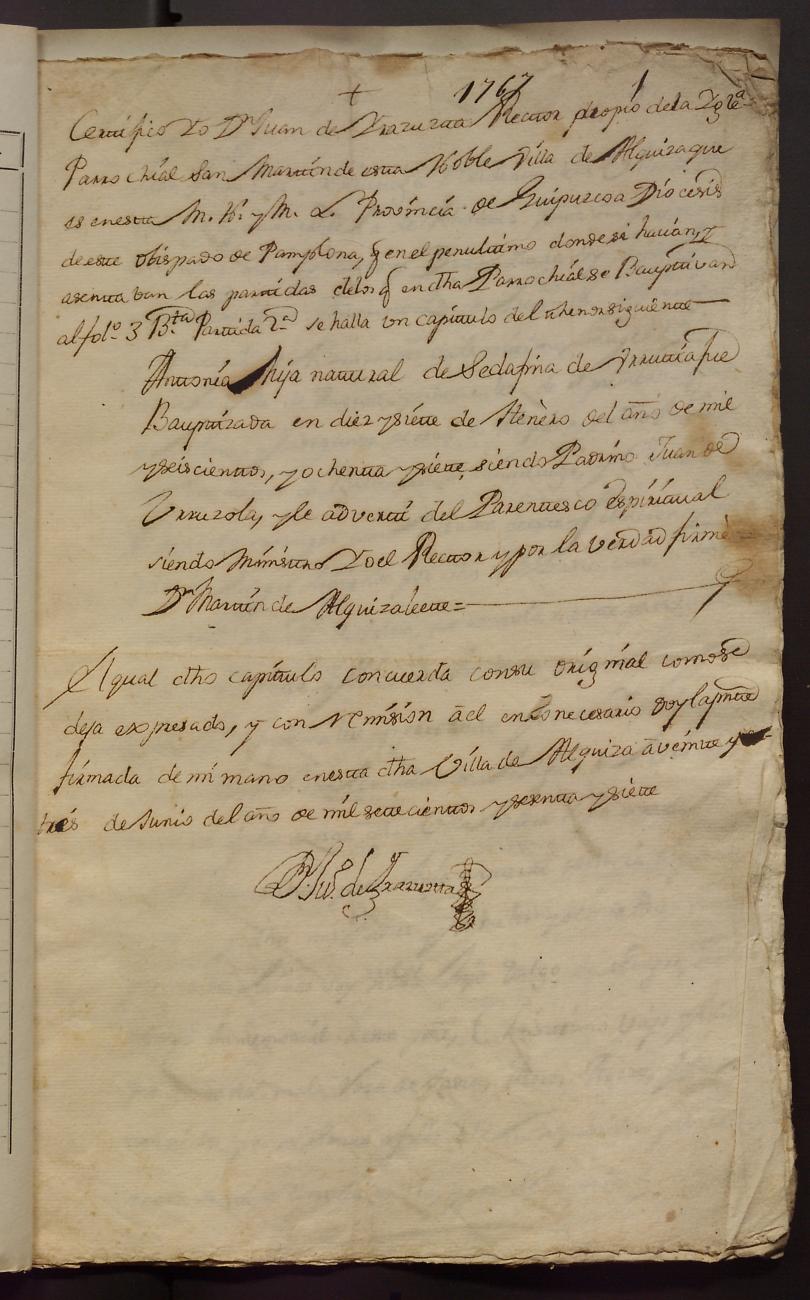 + 1767 1
Certifico Yo Dn Juan de Yrazuzta Rector propio dela Ygla
Parrochial San Martin de esta Noble Villa de Alquiza que
es en esta M. N. y M. L. Provincia de Guipuzcoa Diocesis
de este Obispado de Pamplona, q en el penultimo donde si havian y
asentavan las partidas delos q en dha Parrochial se Bauptizvan
al folo 3 B.ta Partida 2a se halla un capitulo del thenor siguiente
Antonia hija natural de Sedafina de Yrrutia fue
Bauptizada en diez y siete de Henero del año de mil
y seiscientos, y ochenta y siete, siendo Padrino Juan de
Urruzola, y le adverti del Parentesco espiritual
siendo Ministro Yo el Rector y por la verdad firmè
Dn Martin de Alquizalete =
El qual dho capitulo concuerda con su original como se
deja expresado, y con remision àel en lo necesario doy la prnte
firmada de mi mano en esta dha Villa de Alquiza à veinte y
tres de Junio del año de mil setecientos y sesenta y siete
Dn Juo. de Yrazuzta